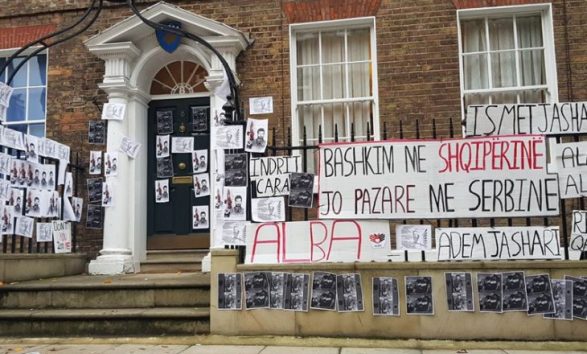 ISMET JASHA
BASHKIM ME SHQIPËRINË
JO PAZARE ME SERBINË
INDRIT
CARA
ALBA
ADEM JASHARI